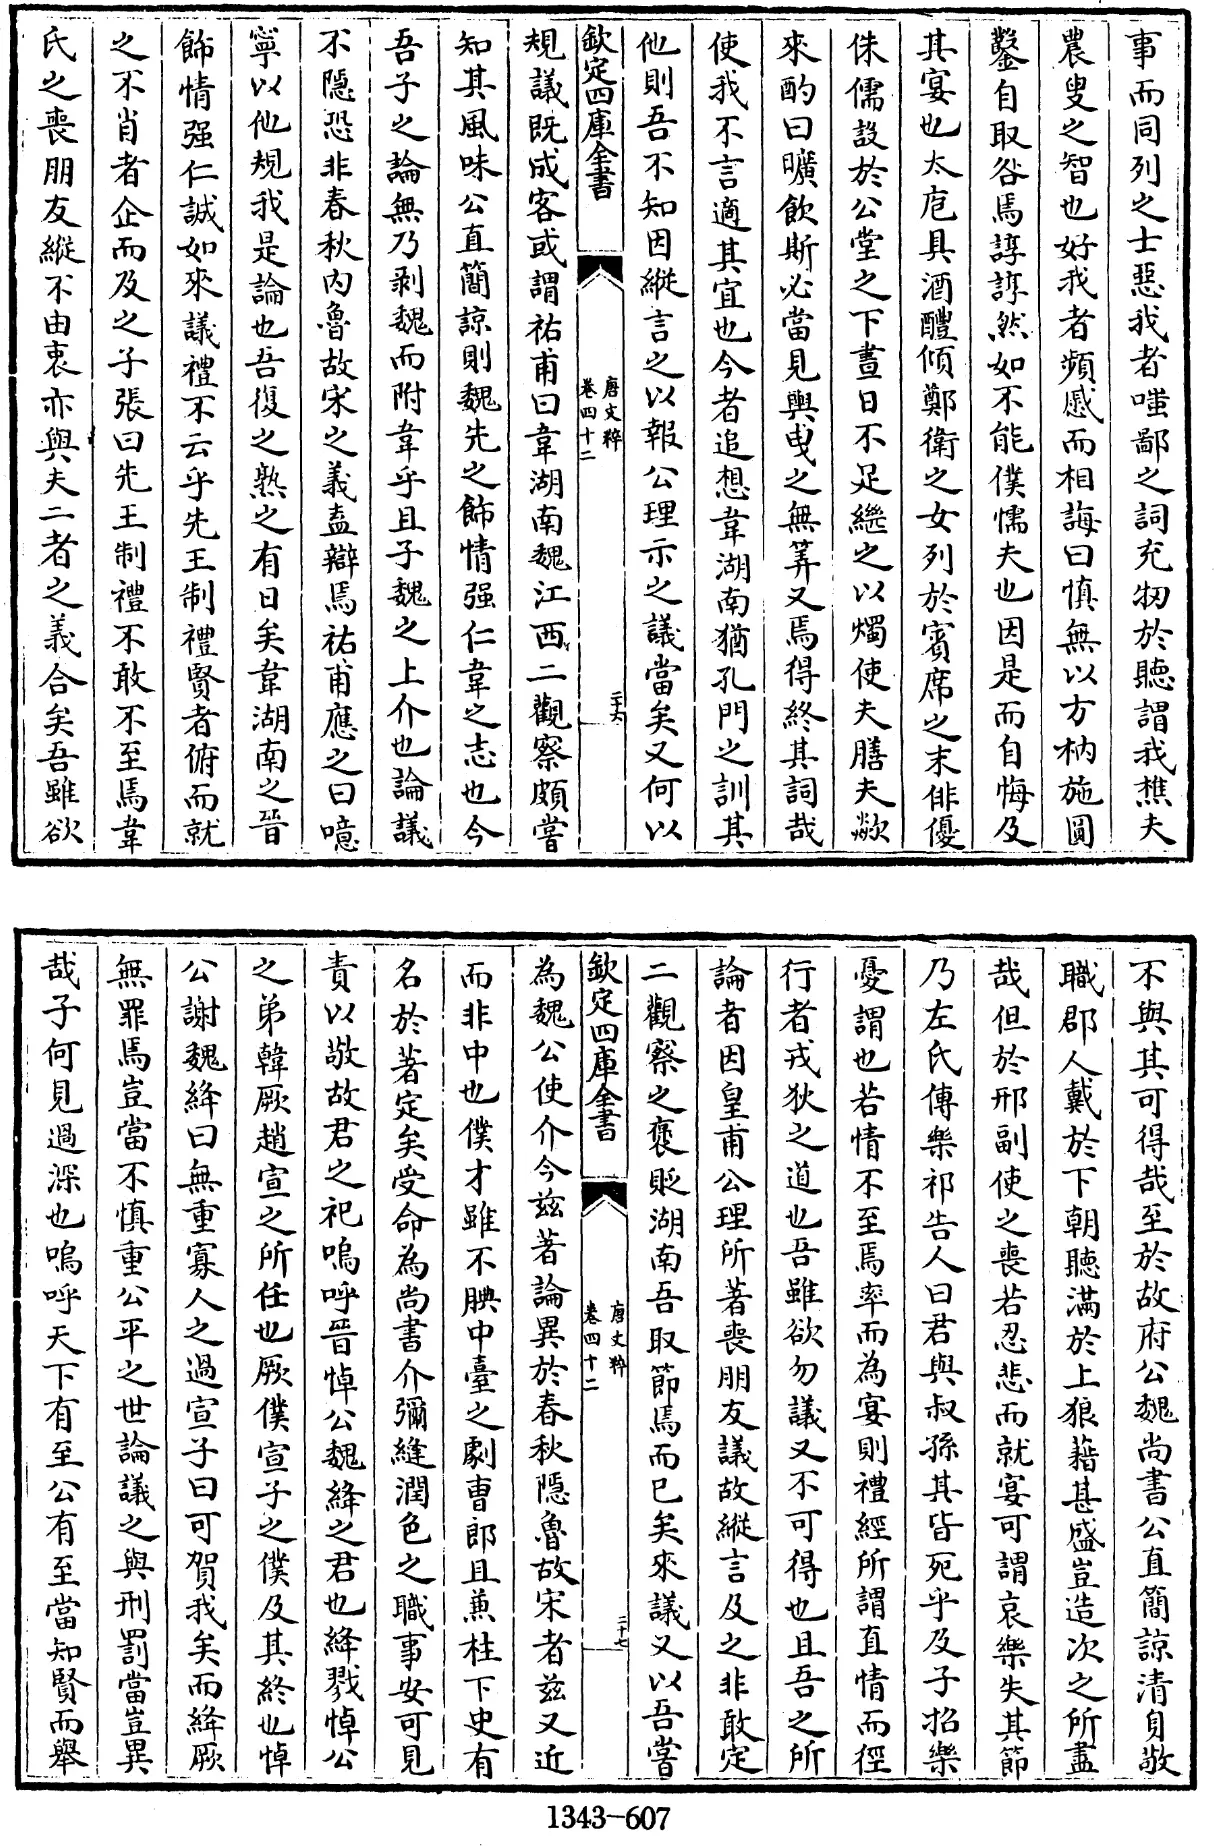 事而同列之士惡我者嗤鄙之詞充牣於聽謂我樵夫
農叟之智也好我者頻蹙而相誨曰慎無以方枘施圓
鑿自取咎焉諄諄然如不能僕懦夫也因是而自悔及
其宴也太庖具酒醴傾鄭衛之女列於賓席之末俳優
侏儒設於公堂之下晝日不足繼之以燭使夫膳夫歘
來酌曰曠飲斯必當見輿曵之無筭又焉得終其詞哉
使我不言適其宜也今者追想韋湖南猶孔門之訓其
他則吾不知因縱言之以報公理示之議當矣又何以
欽定四庫全書
唐文粹
卷四十二
二十六
規議既成客或謂祐甫曰韋湖南魏江西二觀察頗嘗
知其風味公直簡諒則魏先之飾情强仁韋之志也今
吾子之論無乃剥魏而附韋乎且子魏之上介也論議
不隱恐非春秋内魯故宋之義盍辯焉祐甫應之曰噫
寧以他規我是論也吾復之熟之有日矣韋湖南之晉
飾情强仁誠如來議禮不云乎先王制禮賢者俯而就
之不肖者企而及之子張曰先王制禮不敢不至焉韋
氏之喪朋友縱不由衷亦與夫二者之義合矣吾雖欲
不與其可得哉至於故府公魏尚書公直簡諒清身敬
職郡人戴於下朝聽滿於上狼藉甚盛豈造次之所盡
哉但於邢副使之喪若忍悲而就宴可謂哀樂失其節
乃左氏傳樂祁告人曰君與叔孫其皆死乎及子招樂
憂謂也若情不至焉率而為宴則禮經所謂直情而徑
行者戎狄之道也吾雖欲勿議又不可得也且吾之所
論者因皇甫公理所著喪朋友議故縱言及之非敢定
二觀察之褒貶湖南吾取節焉而已矣來議又以吾嘗
欽定四庫全書
唐文粹
卷四十二
二十七
為魏公使介今兹著論異於春秋隱魯故宋者兹又近
而非中也僕才雖不腆中臺之劇曹郎且兼柱下史有
名於著定矣受命為尚書介彌縫潤色之職事安可見
責以敬故君之祀嗚呼晉悼公魏絳之君也絳戮悼公
之弟韓厥趙宣之所任也厥僕宣子之僕及其終也悼
公謝魏絳曰無重寡人之過宣子曰可賀我矣而絳厥
無罪焉豈當不慎重公平之世論議之與刑罰當豈異
哉子何見過深也嗚呼天下有至公有至當知賢而舉
1343-607